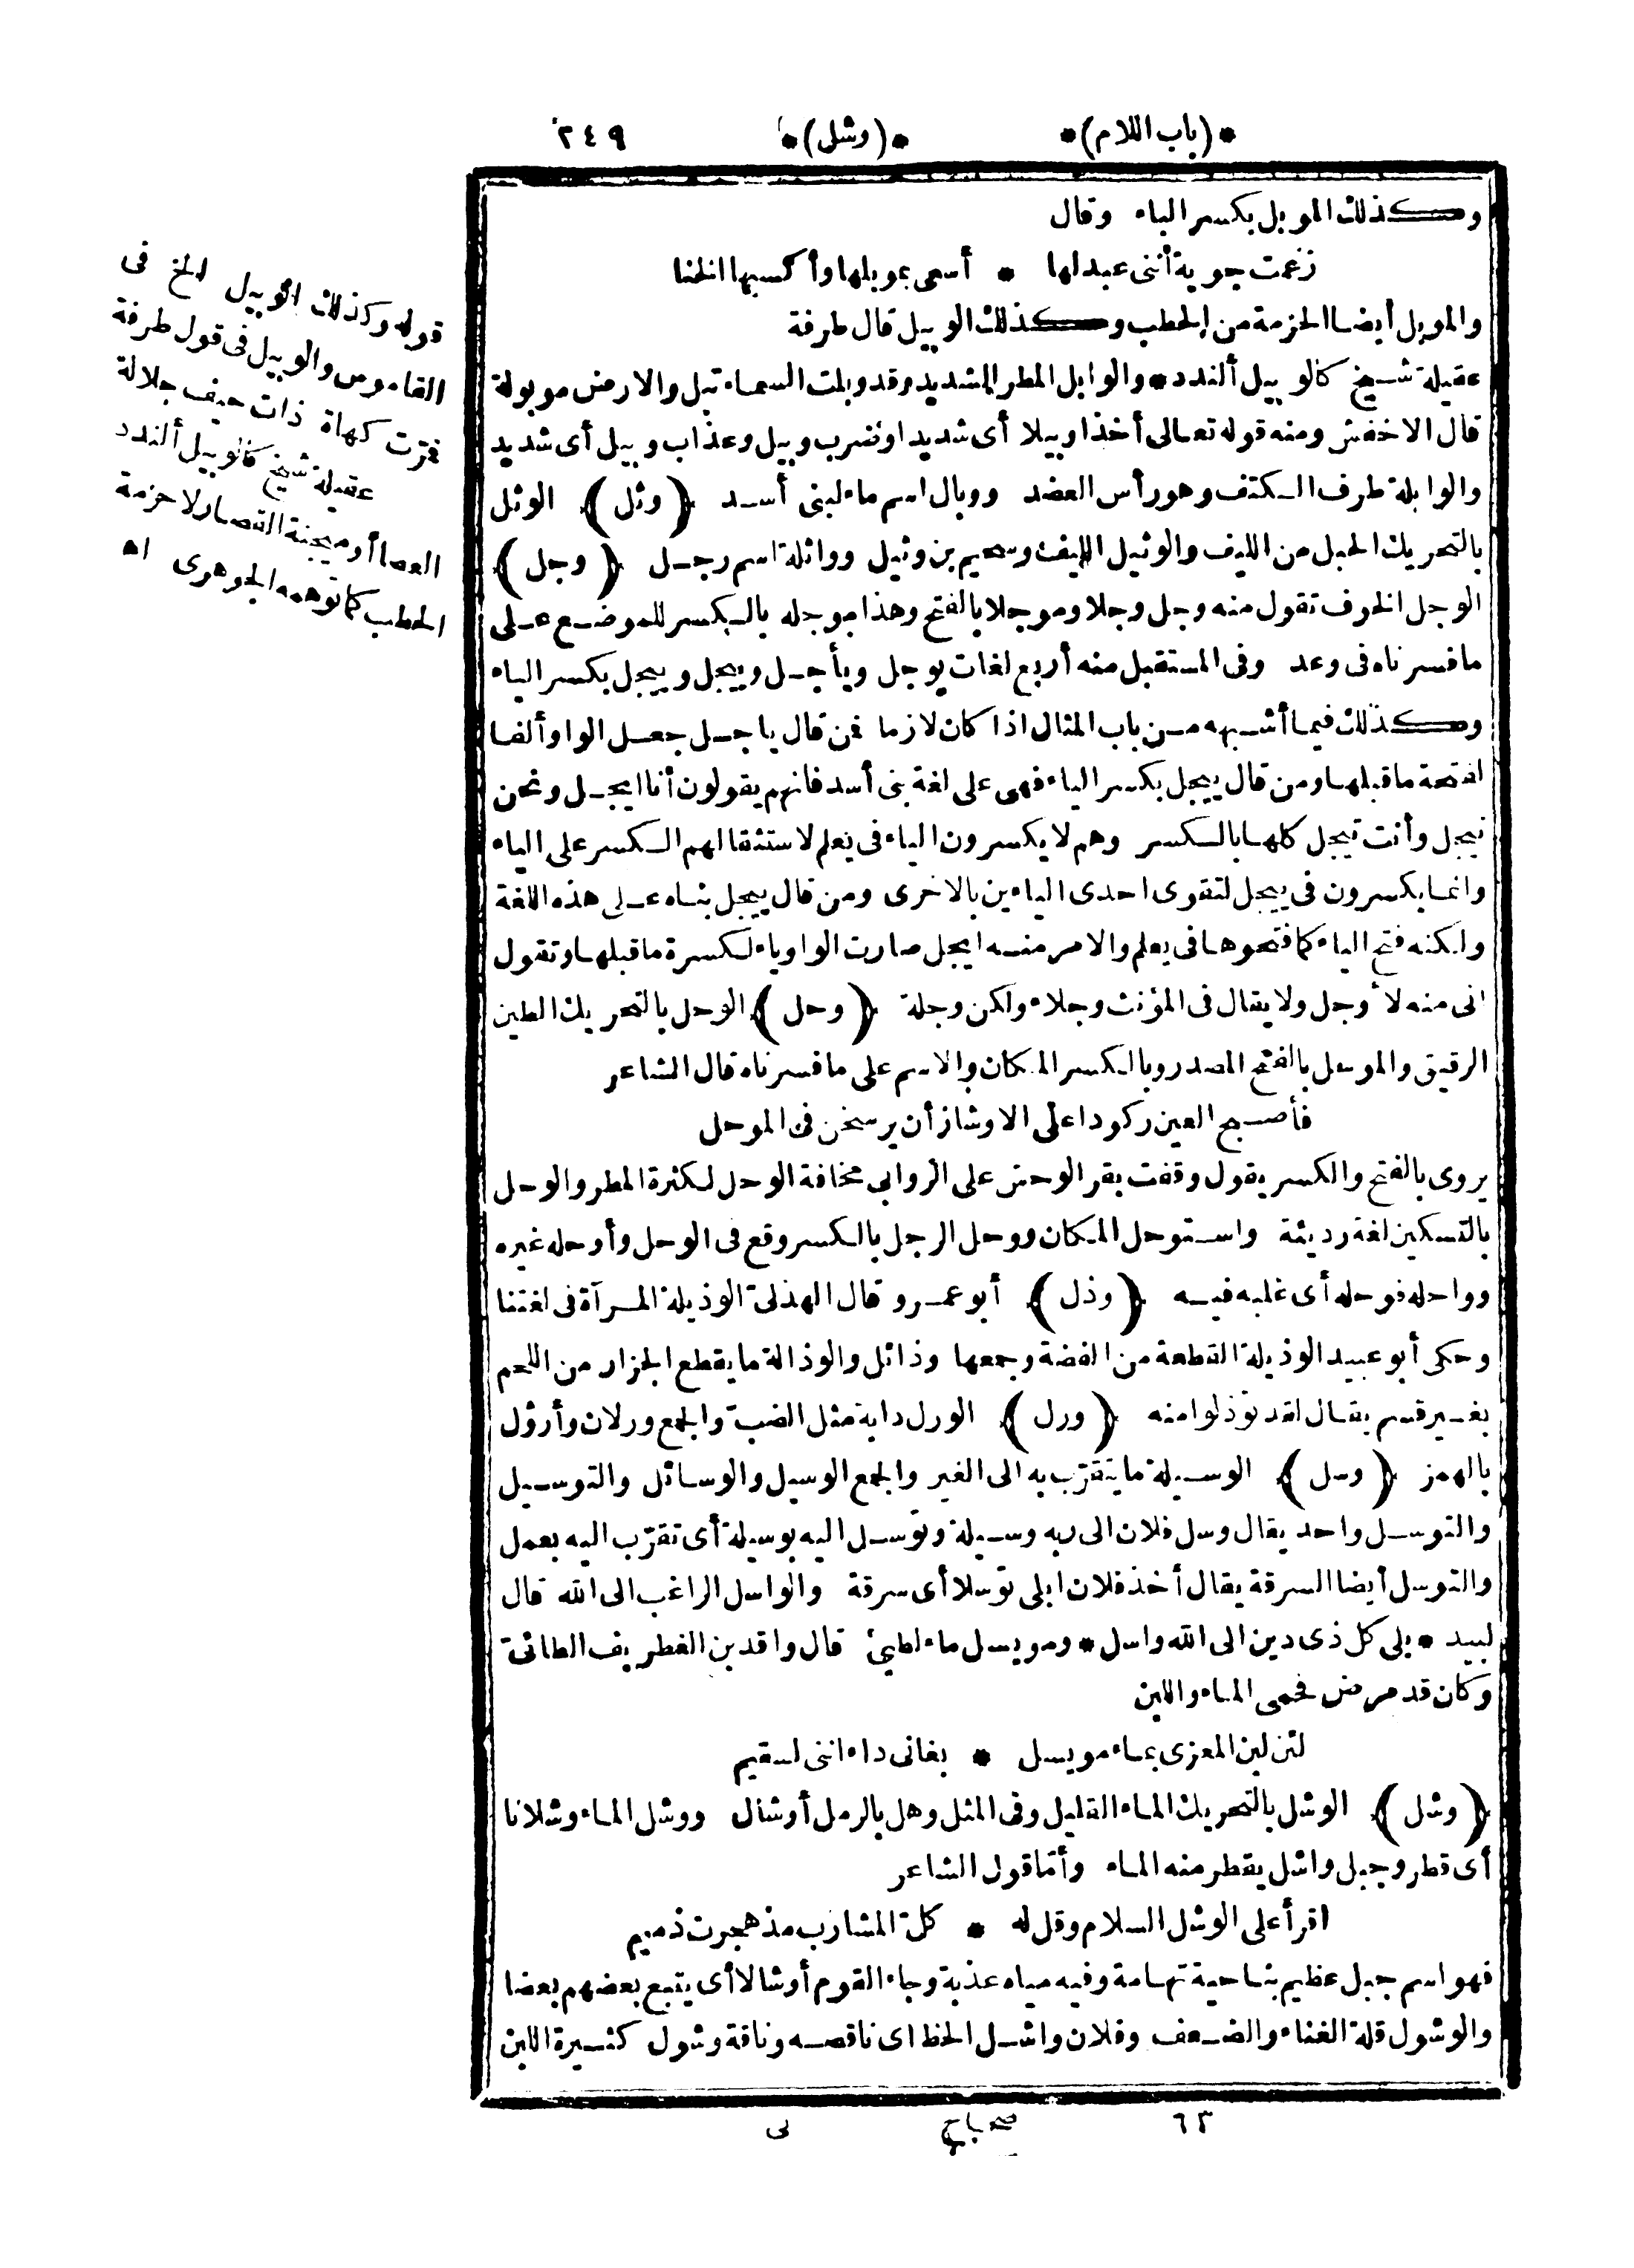 *(باب اللام)* *(وشل)* ٢٤٩
وكذلك الموبل بكسر الباء وقال
زعمت جوية أننى عبد لها * أسعى بموبلها وأكسبها الخنا
والموبل أيضا الحزمة من الحطب وكذلك الوبيل قال طرفة
عقيلة شيخ كالوبيل ألندد * والوابل المطر الشديد وقد وبلت السماء تبل والارض موبولة
قال الاخفش ومنه قوله تعالى أخذا وبيلا أى شديدا وضرب وبيل وعذاب وبيل أى شديد
والوابلة طرف الكتف وهو رأس العضد ووبال اسم ماء لبنى أسد ﴿وثل﴾ الوثل
بالتحريك الحبل من الليف والوثيل الليف وسحيم بن وثيل وواثلة اسم رجل ﴿وجل﴾
الوجل الخوف تقول منه وجل وجلا وموجلا بالفتح وهذا موجله بالكسر للموضع على
ما فسرناه فى وعد وفى المستقبل منه أربع لغات يوجل ويأجل وييجل وييجل بكسر الياء
وكذلك فيما أشبهه من باب المثال اذا كان لازما فمن قال ياجل جعل الواو ألفا
لفتحة ما قبلها ومن قال ييجل بكسر الياء فهى على لغة بنى أسد فانهم يقولون أنا ايجل ونحن
نيجل وأنت تيجل كلها بالكسر وهم لا يكسرون الياء فى يعلم لاستثقالهم الكسر على الياء
وانما يكسرون فى ييجل لتقوى احدى الياءين بالاخرى ومن قال ييجل بناه على هذه اللغة
ولكنه فتح الياء كما فتحوها فى يعلم والامر منه ايجل صارت الواو ياء لكسرة ما قبلها وتقول
انى منه لأوجل ولا يقال فى المؤنث وجلاء ولكن وجلة ﴿وحل﴾ الوحل بالتحريك الطين
الرقيق والموحل بالفتح المصدر وبالكسر المكان والاسم على ما فسرناه قال الشاعر
فأصبح العين ركودا على الاوشاز أن يرسخن فى الموحل
يروى بالفتح والكسر يقول وقفت بقر الوحش على الروابى مخافة الوحل لكثرة المطر والوحل
بالتسكين لغة رديئة واستوحل المكان ووحل الرجل بالكسر وقع فى الوحل وأوحله غيره
وواحله فوحله أى غلبه فيه ﴿وذل﴾ أبو عمرو قال الهذلىّ الوذيلة المرآة فى لغتنا
وحكى أبو عبيد الوذيلة القطعة من الفضة وجمعها وذائل والوذالة ما يقطع الجزار من اللحم
بغير قسم يقال لقد توذلوا منه ﴿ورل﴾ الورل دابة مثل الضبّ والجمع ورلان وأرؤل
بالهمز ﴿وسل﴾ الوسيلة ما يتقرّب به الى الغير والجمع الوسيل والوسائل والتوسيل
والتوسل واحد يقال وسل فلان الى ربه وسيلة وتوسل اليه بوسيلة أى تقرّب اليه بعمل
والتوسل أيضا السرقة يقال أخذ فلان ابلى توسلا أى سرقة والواسل الراغب الى الله قال
لبيد * بلى كل ذى دين الى الله واسل * ومويسل ماء لطيئ قال واقد بن الغطريف الطائىّ
وكان قد مرض فحمى الماء واللبن
لئن لبن المعزى بماء مويسل * بغانى داء اننى لسقيم
﴿وشل﴾ الوشل بالتحريك الماء القليل وفى المثل وهل بالرمل أوشال ووشل الماء وشلانا
أى قطر وجبل واشل يقطر منه الماء وأمّا قول الشاعر
اقرأ على الوشل السلام وقل له * كلّ المشارب مذ هجرت ذميم
فهو اسم جبل عظيم بناحية تهامة وفيه مياه عذبة وجاء القوم أوشالا أى يتبع بعضهم بعضا
والوشول قلة الغناء والضعف وفلان واشل الحظ اى ناقصه وناقة وشول كثيرة اللبن
٦٣ صحاح نى
قوله وكذلك الوبيل الخ فى
القاموس والوبيل فى قول طرفة
فمرّت كهاة ذات خيف جلالة
عقيلة شيخ كالوبيل ألندد
العصا أو ميجنة القصار لا حزمة
الحطب كما توهمه الجوهرى اه